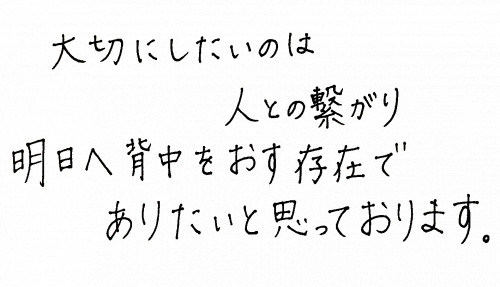 大切にしたいのは
人との繋がり
明日へ背中をおす存在で
ありたいと思っております。